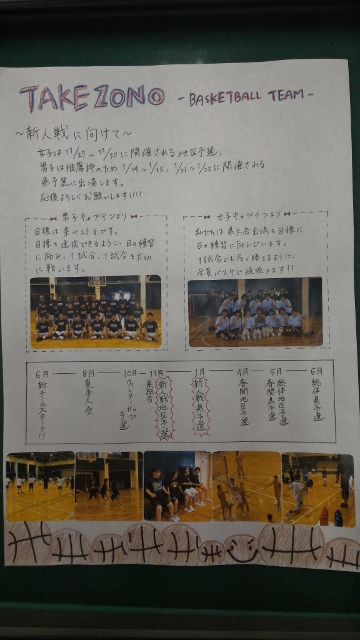 TAKEZONO - BASKETBALL TEAM -
～新人戦に向けて～
女子は11/27～11/30に開催される地区予選、
男子は推薦枠のため1/14～1/15、1/21～1/22に開催される
県予選に出場します。
応援よろしくお願いします!!!!
男子キャプテンより
目標は県ベスト
目標を達成できるように日々練習
に励み、1試合、1試合を大切
に戦います。
女子キャプテンより
私たちは県大会出場を目標に
日々練習に励んでいます。
1試合でも多く勝てるように、
全員バスケで頑張ります!!
6月 新チームスタート!!
8月 夏季大会
10月 ウィンターカップ予選
11月 県総合
新人戦地区予選
1月 新人戦県予選
4月 春関地区予選
5月 総体地区予選
春関県予選
6月 総体県予選